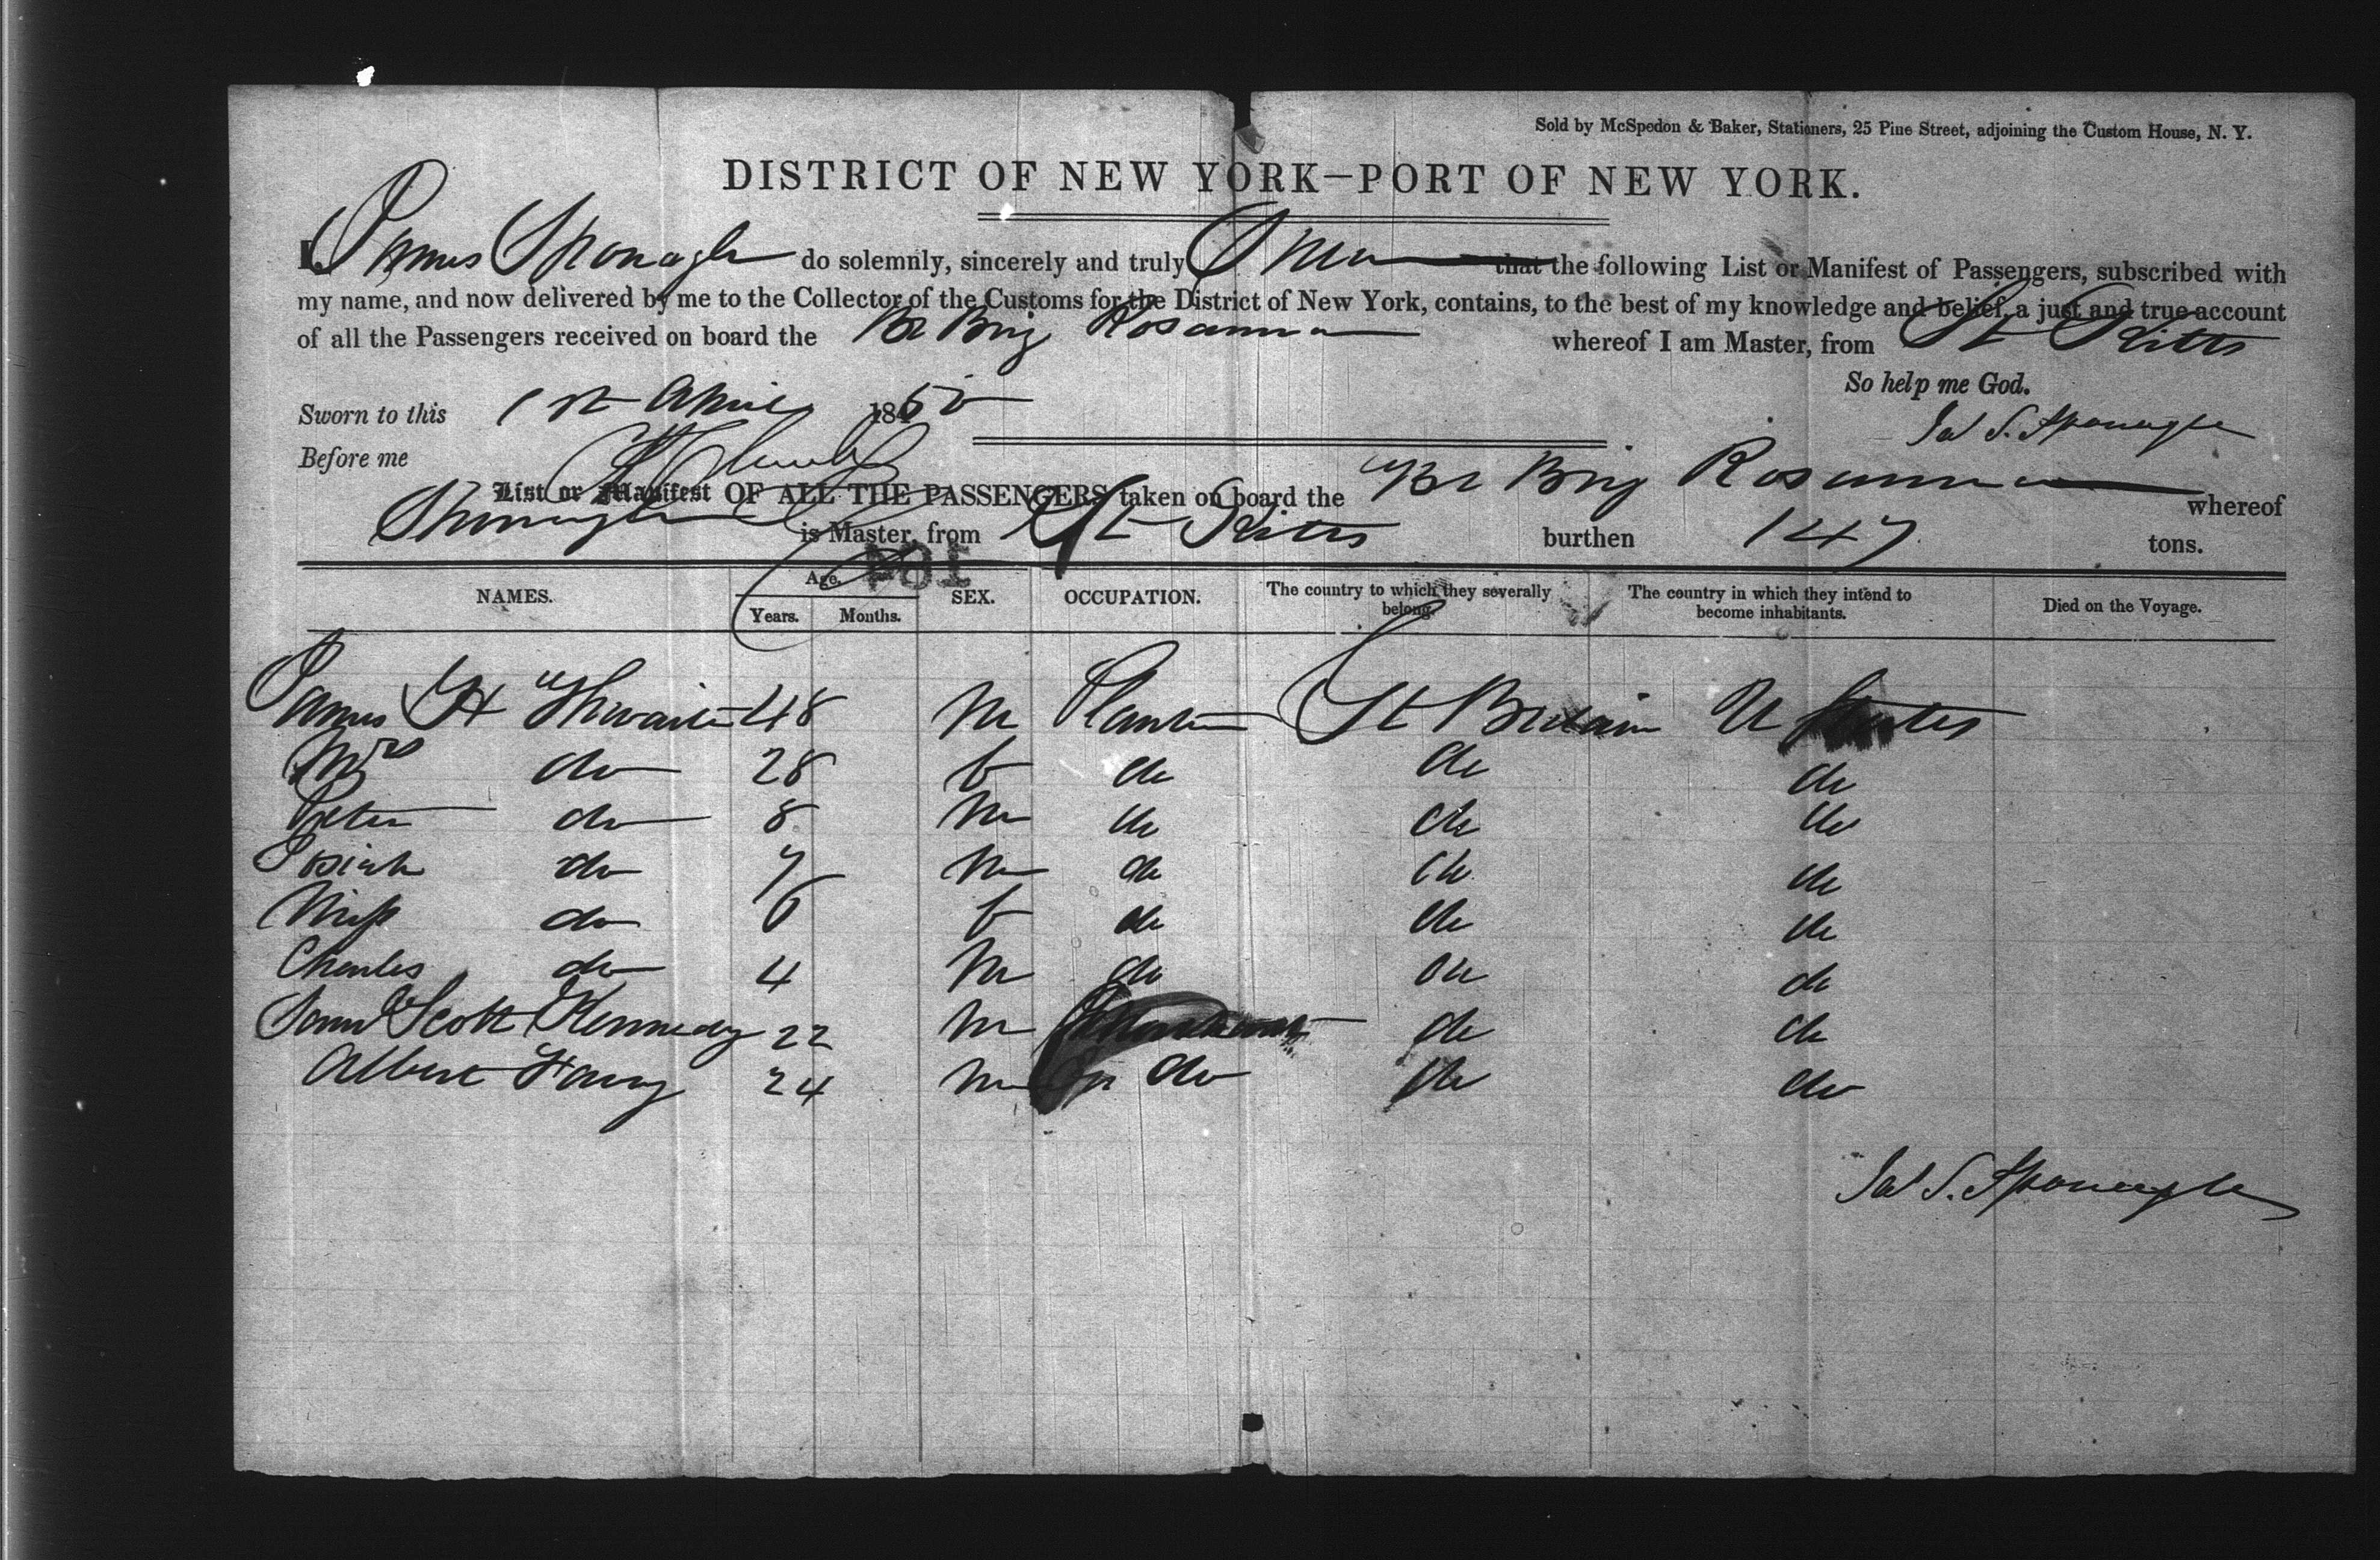 Sold by McSpedon & Baker, Stationers, 25 Pine Street, adjoining the Custom House, N. Y.
DISTRICT OF NEW YORK—PORT OF NEW YORK.
I, James Sponagle do solemnly, sincerely and truly Swear that the following List or Manifest of Passengers, subscribed with
my name, and now delivered by me to the Collector of the Customs for the District of New York, contains, to the best of my knowledge and belief, a just and true account
of all the Passengers received on board the Br Brig Rosanna whereof I am Master, from St Kitts
So help me God.
Sworn to this 1st April 1850
Jas S. Sponagle
Before me
List or Manifest OF ALL THE PASSENGERS taken on board the Br Brig Rosanna whereof
Sponagle is Master, from St Kitts burthen 147 tons.
104
NAMES. Age. Years. Months. SEX. OCCUPATION. The country to which they severally belong. The country in which they intend to become inhabitants. Died on the Voyage.
James H Thwaites 48 M Planter Gt Britain U States
Mrs do 28 f do do do
Peter do 8 M do do do
Josiah do 7 M do do do
Miss do 6 f do do do
Charles do 4 M do do do
Saml Scott Kennedy 22 M do do
Albert 24 M do do do
Jas S. Sponagle